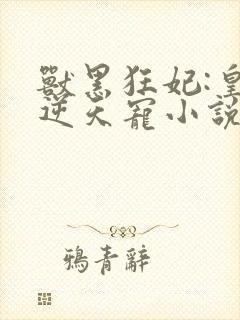 獸黑狂妃:皇
逆天寵小說
鴉青辭